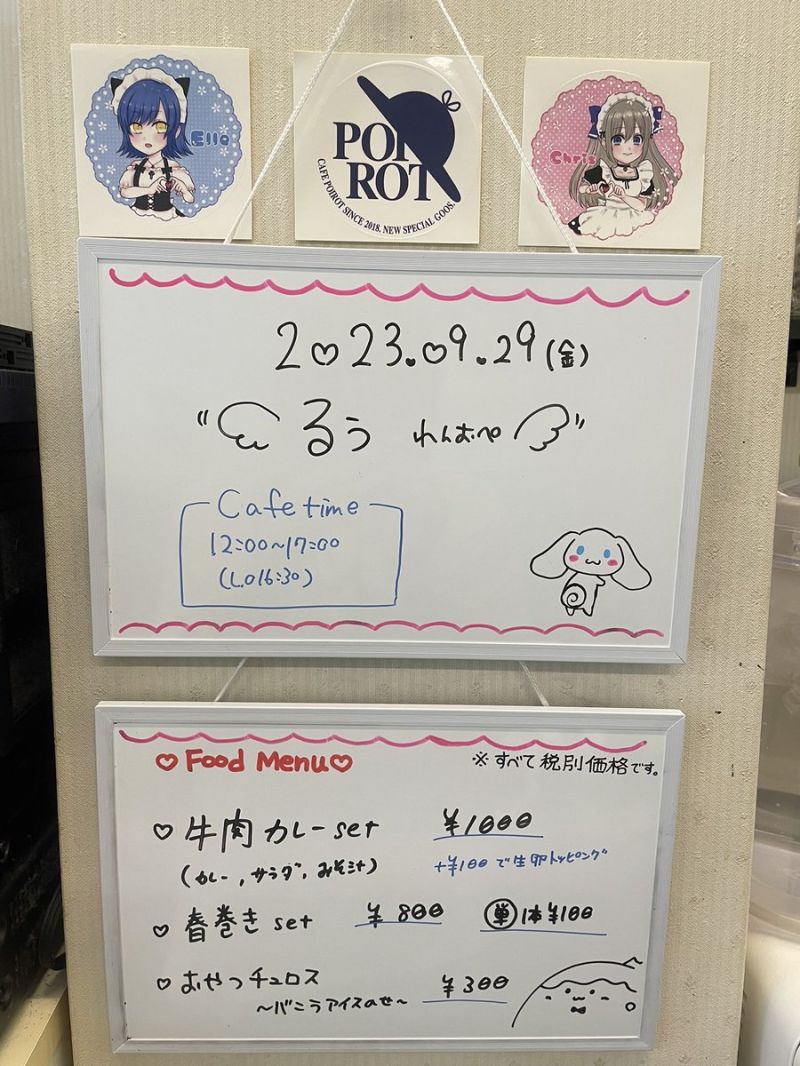 Ello
POI
ROT
CAFE POIROT SINCE 2018. NEW SPECIAL GOOS.
Chris
2023.09.29(金)
"るぅ わんおぺ"
Cafe time
12:00~17:00
(L.O16:30)
♡Food Menu♡
※すべて税別価格です。
♡ 牛肉カレーset ¥1000
(カレー,サラダ,みそ汁) +¥100で生卵トッピング
♡ 春巻きset ¥800 単 1本¥100
♡ おやつチュロス ¥300
~バニラアイスのせ~